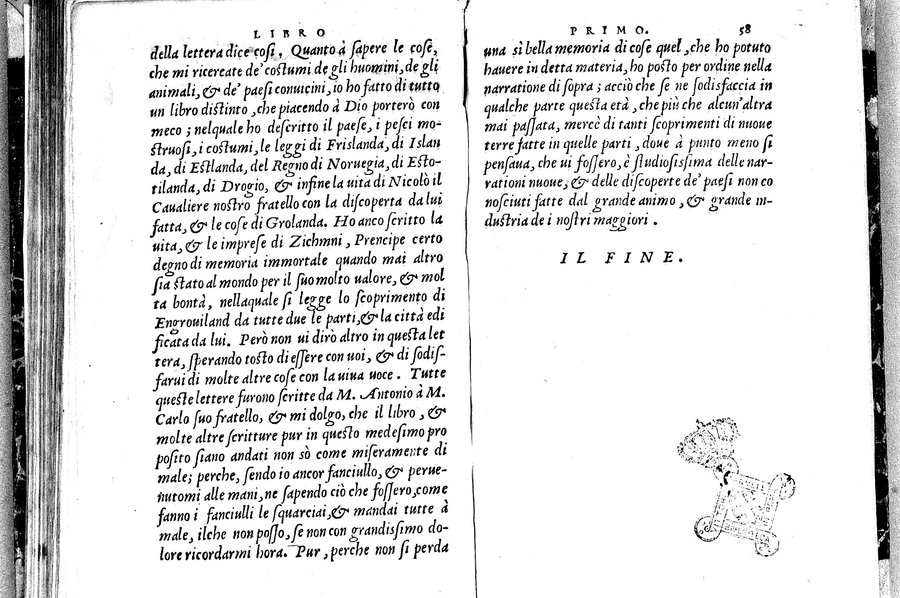 LIBRO
della lettera dice cosi. Quanto à sapere le cose,
che mi ricercate de' costumi de gli huomini, de gli
animali, & de' paesi conuicini, io ho fatto di tutto
un libro distinto, che piacendo à Dio porterò con
meco; nelquale ho descritto il paese, i pesci mo-
struosi, i costumi, le leggi di Frislanda, di Islan
da, di Estlanda, del Regno di Noruegia, di Esto-
tilanda, di Drogio, & infine la uita di Nicolò il
Caualiere nostro fratello con la discoperta da lui
fatta, & le cose di Grolanda. Ho anco scritto la
uita, & le imprese di Zichmni, Prencipe certo
degno di memoria immortale quando mai altro
sia stato al mondo per il suo molto ualore, & mol
ta bontà, nellaquale si legge lo scoprimento di
Engrouiland da tutte due le parti, & la città edi
ficata da lui. Però non ui dirò altro in questa let
tera, sperando tosto di essere con uoi, & di sodis-
farui di molte altre cose con la uiua uoce. Tutte
queste lettere furono scritte da M. Antonio à M.
Carlo suo fratello, & mi dolgo, che il libro, &
molte altre scritture pur in questo medesimo pro
posito siano andati non sò come miseramente di
male; perche, sendo io ancor fanciullo, & perue-
nutomi alle mani, ne sapendo ciò che fossero, come
fanno i fanciulli le squarciai, & mandai tutte à
male, ilche non posso, se non con grandissimo do-
lore ricordarmi hora. Pur, perche non si perda
PRIMO. 58
una sì bella memoria di cose quel, che ho potuto
hauere in detta materia, ho posto per ordine nella
narratione di sopra; acciò che se ne sodisfaccia in
qualche parte questa età, che più che alcun'altra
mai passata, mercè di tanti scoprimenti di nuoue
terre fatte in quelle parti, doue à punto meno si
pensaua, che ui fossero, è studiosissima delle nar-
rationi nuoue, & delle discoperte de' paesi non co
nosciuti fatte dal grande animo, & grande in-
dustria de i nostri maggiori.
IL FINE.